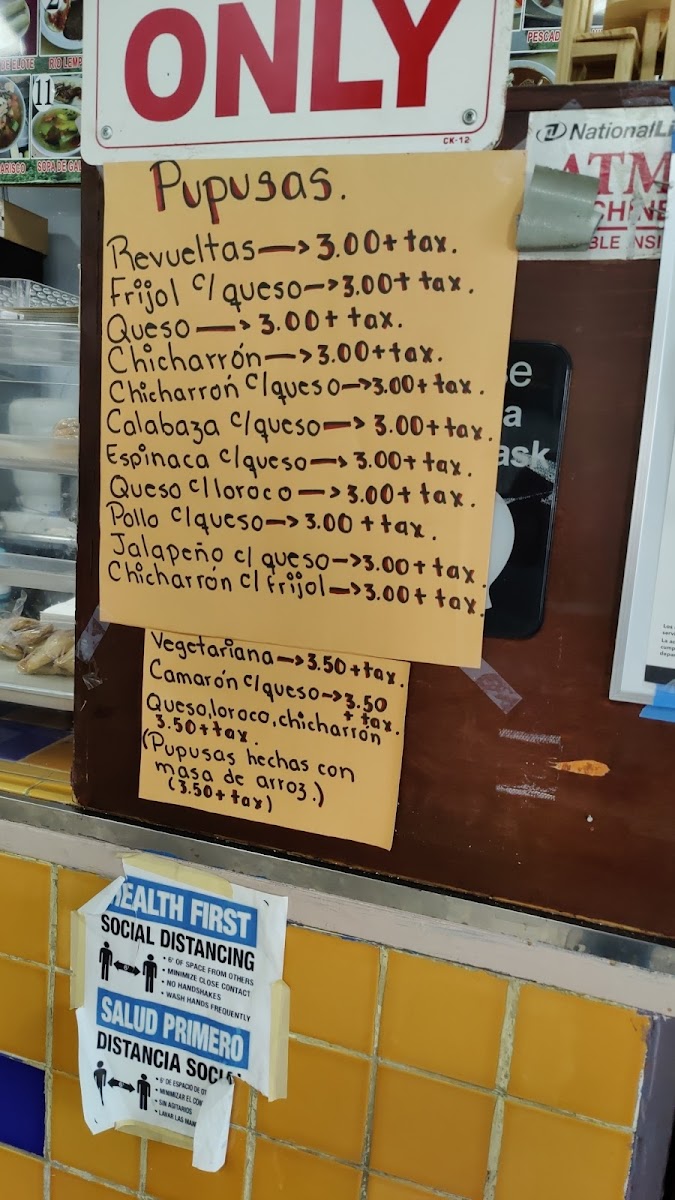 ONLY
CK-12
Pupusas.
Revueltas—>3.00+tax.
Frijol c/queso—>3.00+tax.
Queso—>3.00+tax.
Chicharrón—>3.00+tax.
Chicharrón c/queso—>3.00+tax.
Calabaza c/queso—>3.00+tax.
Espinaca c/queso—>3.00+tax.
Queso c/loroco—>3.00+tax.
Pollo c/queso—>3.00+tax.
Jalapeño c/queso—>3.00+tax.
Chicharrón c/frijol—>3.00+tax.
Vegetariana—>3.50+tax.
Camarón c/queso—>3.50
+tax.
Queso,loroco,chicharrón
3.50+tax.
(Pupusas hechas con
masa de arroz.)
(3.50+tax)
NationalLi
ATM
CHINE
BLE INSI
e
a
ask
11
HEALTH FIRST
SOCIAL DISTANCING
• 6' OF SPACE FROM OTHERS
• MINIMIZE CLOSE CONTACT
• NO HANDSHAKES
• WASH HANDS FREQUENTLY
SALUD PRIMERO
DISTANCIA SOCI
• 6' DE ESPACIO DE OT
• MINIMIZAR EL CON
• SIN AGITARIOS
• LAVAR LAS MAN